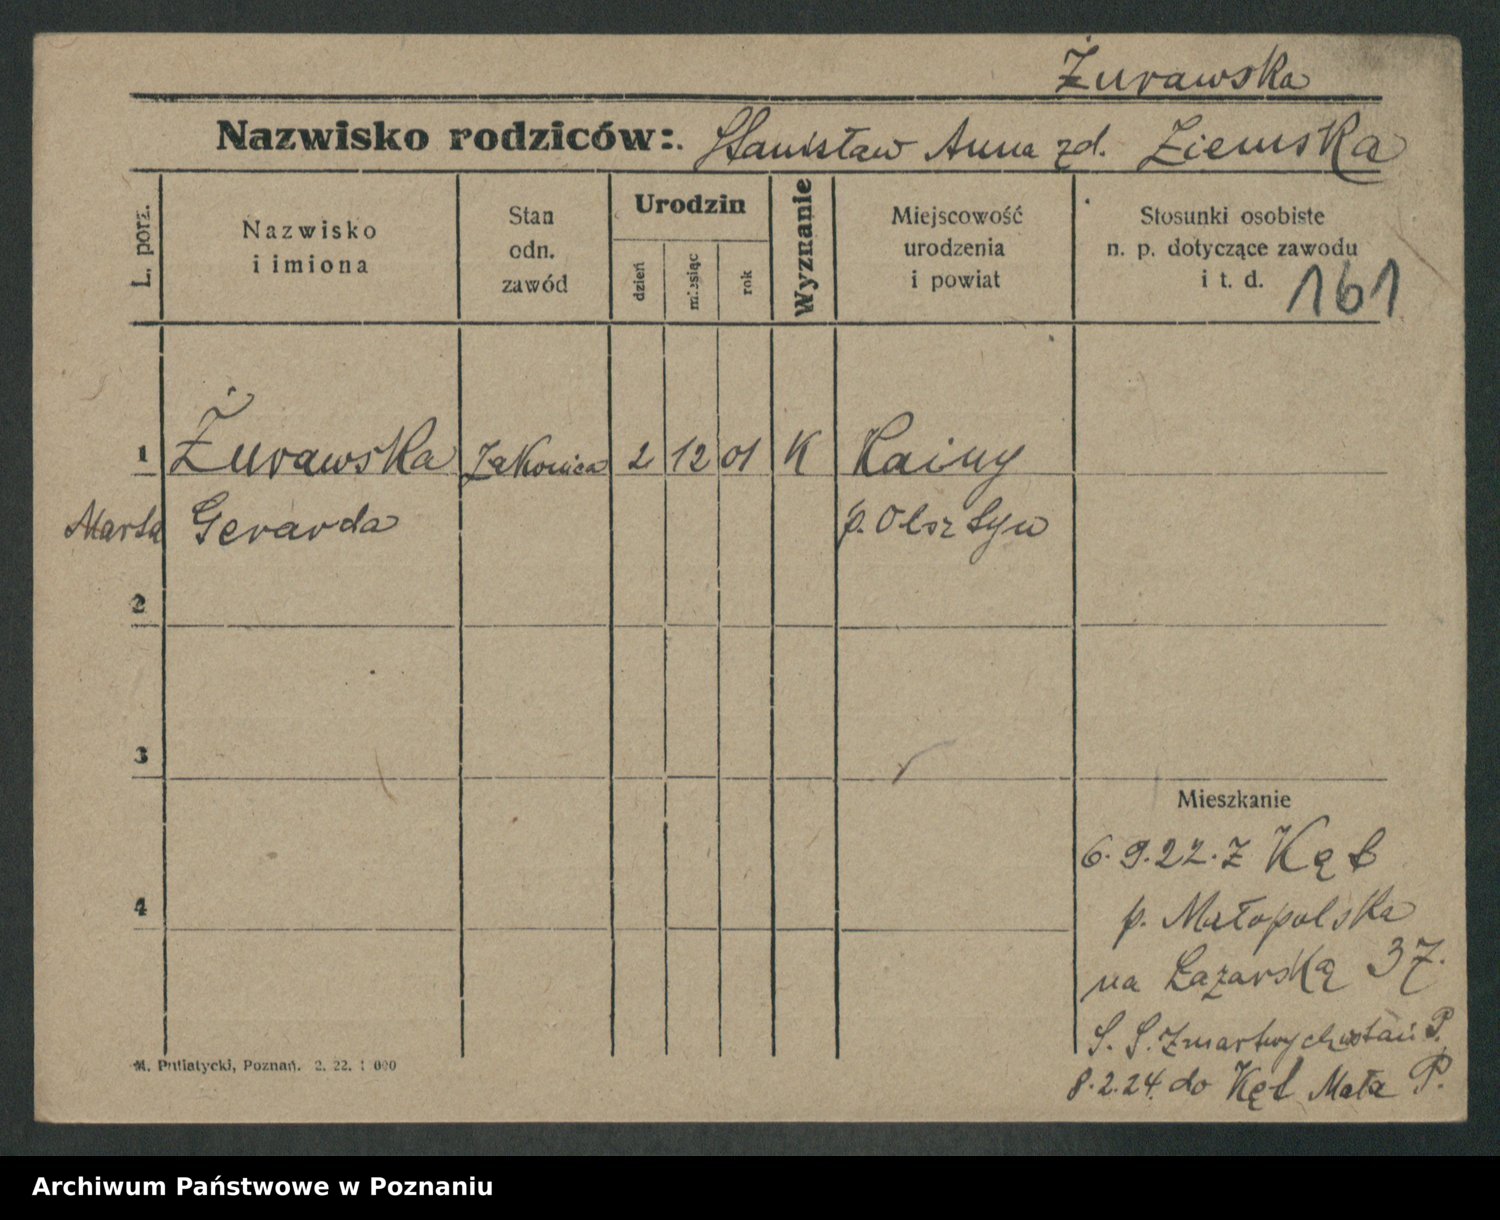 Żurawska
Nazwisko rodziców: Stanisław Anna zd. Ziemska
L. porz.
Nazwisko
i imiona
Stan
odn.
zawód
Urodzin
dzień
miesiąc
rok
Wyznanie
Miejscowość
urodzenia
i powiat
Stosunki osobiste
n. p. dotyczące zawodu
i t. d.
161
1 Żurawska Zakonica 2 12 01 K Kainy
Marta Gerarda p. Olsztyn
2
3
4
Mieszkanie
6.9.22. z Kęt
p. Małopolska
na Łazarską 37.
S. S. Zmartwychwstań P.
8.2.24. do Kęt Mała P.
M. Putiatycki, Poznań. 2. 22. 1 000
Archiwum Państwowe w Poznaniu